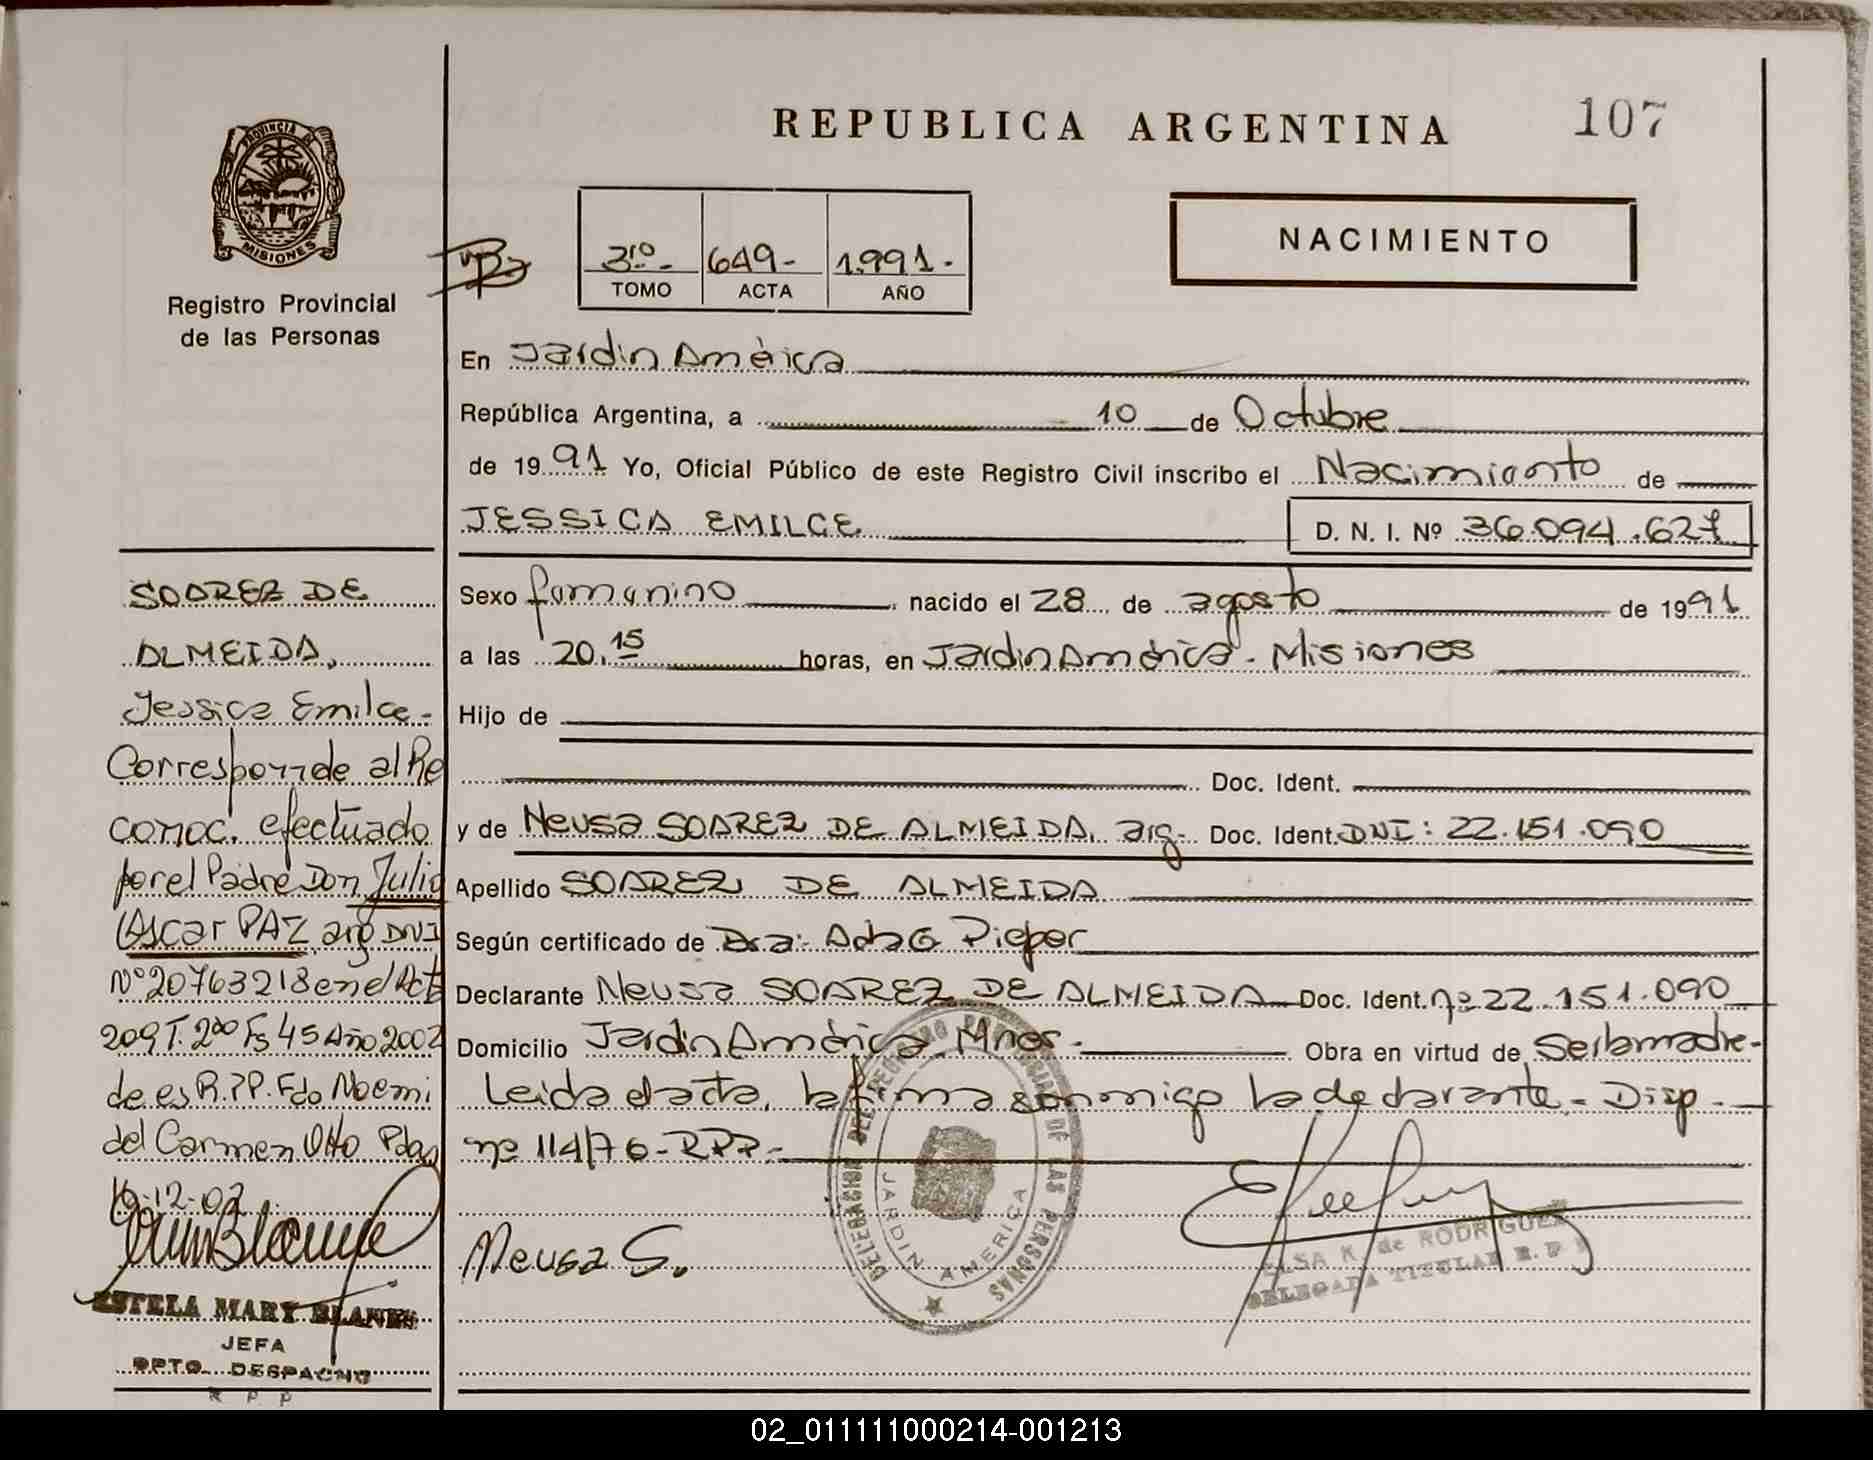 REPUBLICA ARGENTINA
107
PROVINCIA DE
MISIONES
Registro Provincial
de las Personas
3ro.- 649- 1.991.-
TOMO ACTA AÑO
NACIMIENTO
En Jardin América
República Argentina, a 10 de Octubre
de 1991 Yo, Oficial Público de este Registro Civil inscribo el Nacimiento de
JESSICA EMILCE
D. N. I. Nº 36.094.627
Sexo femenino nacido el 28 de agosto de 1991
a las 20,15 horas, en Jardin América - Misiones
Hijo de
Doc. Ident.
y de Neusa SOAREZ DE ALMEIDA, arg- Doc. Ident. DNI: 22.151.090
Apellido SOAREZ DE ALMEIDA
Según certificado de Dra: Ada G Pieper
Declarante Neusa SOAREZ DE ALMEIDA Doc. Ident. nº 22.151.090
Domicilio Jardin América - Mnes.- Obra en virtud de Ser la madre-
Leida el acta, la firma conmigo la declarante.- Disp.-
nº 114/76-RPP.-
Neusa S.
DELEGACION DEL REGISTRO PROVINCIAL DE LAS PERSONAS
JARDIN AMERICA
ELSA K. de RODRIGUEZ
DELEGADA TITULAR R. P. P.
SOAREZ DE
ALMEIDA,
Jessica Emilce-
Corresponde al Re
conoc. efectuado
por el Padre Don Julio
Oscar PAZ, arg DNI
Nº 20763218 en el Act
209 T. 2do Fs 45 Año 2002
de es R.PP. Fdo Noemi
del Carmen Otto Pdas
16-12-02
ESTELA MARY BLANES
JEFA
DPTO. DESPACHO
R P P
02_011111000214-001213